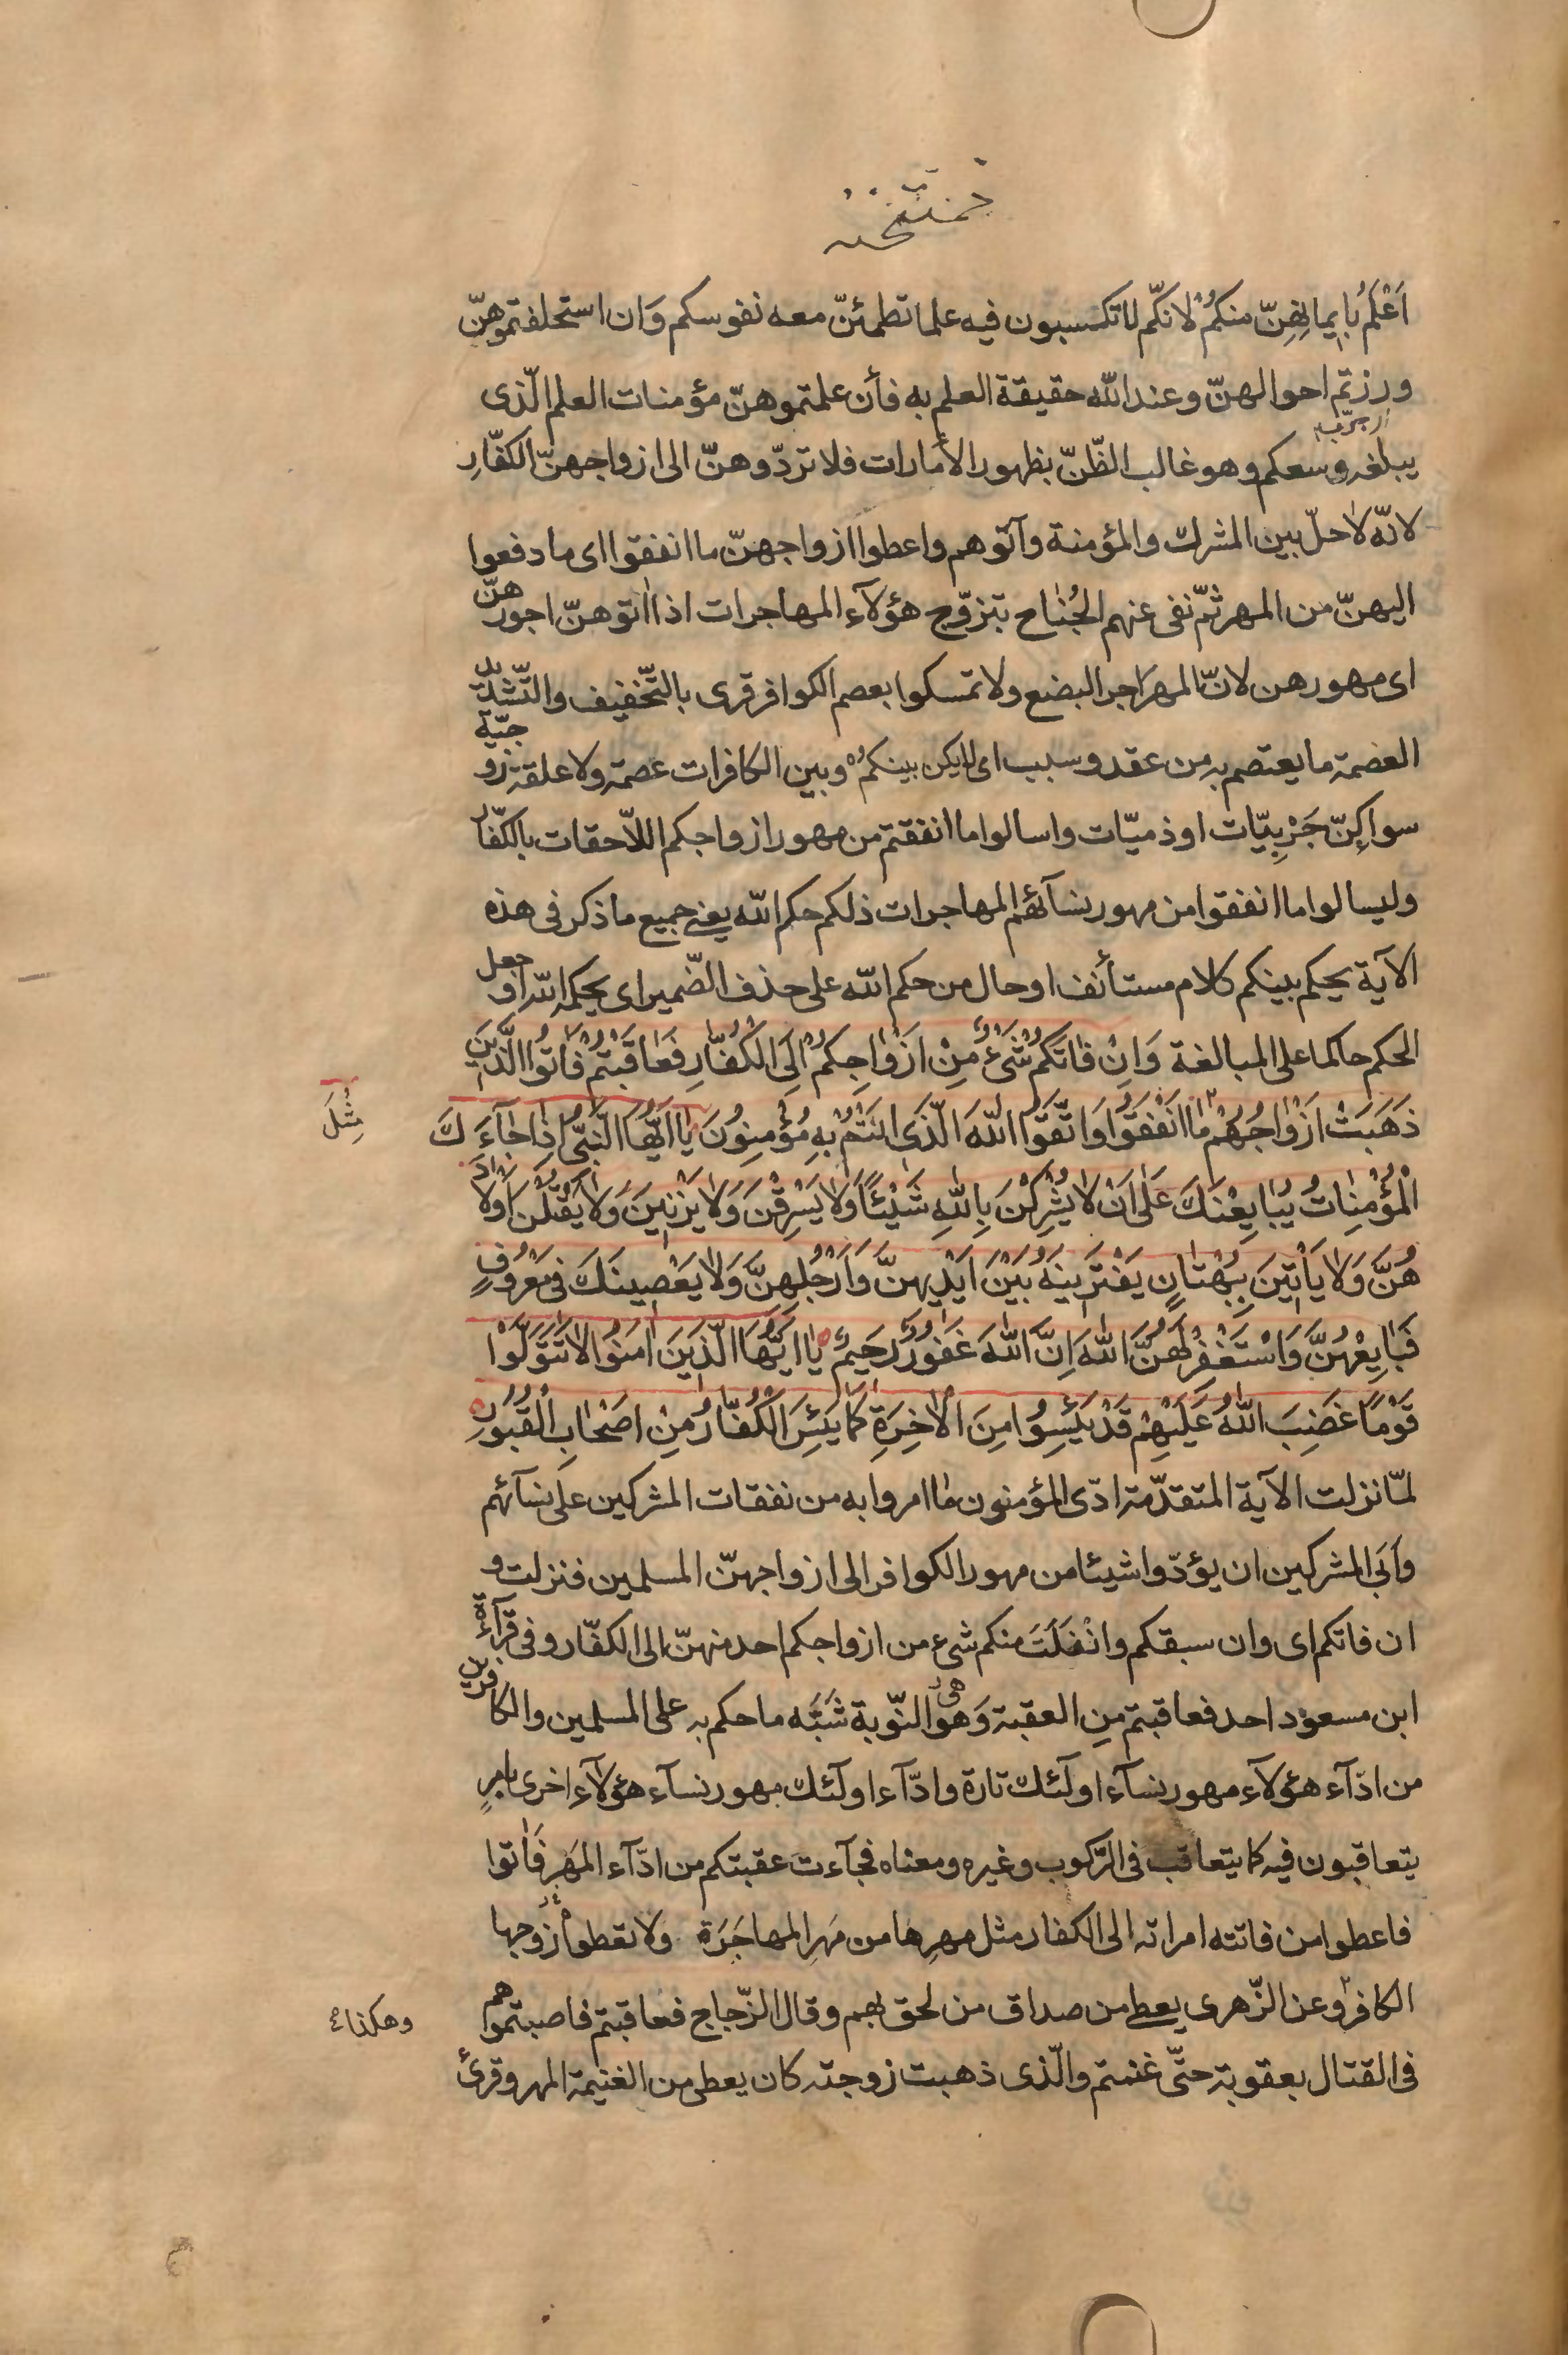 ممتحنه
اَعْلَمُ بِايمانِهِنّ منكُمْ لانّكم لا تكتسبون فيه علما تطمئنّ معه نفوسكم وَان استحلفتموهنّ
ورزتم احوالهنّ وعند الله حقيقة العلم به فأن علمتموهنّ مؤمنات العلم الّذى
يبلغه وسعكم وهو غالب الظّنّ بظهور الأمارات فلا تردّوهنّ الى ازواجهنّ الكفّارِ
لانّه لا حلّ بين المشرك والمؤمنة وآتوهم واعطوا ازواجهنّ ما انفقوا اى ما دفعوا
اليهنّ من المهر ثمّ نفى عنهم الجُناح بتزوّج هؤلآء المهاجرات اذا اتوهنّ اجورهنّ
اى مهورهن لانّ المهرَ اجر البضع ولا تمسكوا بعصم الكوافر قرى بالتّخفيف والتّشديد
العصمة ما يعتصم به من عقد وسبب اى لا يكن بينكمُ وبين الكافرات عصمة ولا علقة زوجيّة
سوا كنّ حَرْبِيّات او ذميّات واسالوا ما انفقتم من مهور ازواجكم اللاّحقات بالكفّار
وليسالوا ما انفقوا من مهور نسآئهم المهاجرات ذلكم حكم الله يعنى جميع ما ذكر فى هذه
الآية يحكم بينكم كلام مستأنف او حال من حكم الله على حذف الضّمير اى يحكمه الله او جعل
الحكم حاكما على المبالغة وَاِنْ فٰاتَكُمْ شَىْءٌ مِنْ اَزْوٰاجِكُمْ اِلَى الْكُفّٰارِ فَعٰاقَبْتُمْ فَاٰتُوا الَّذينَ
ذَهَبَتْ اَزْوٰاجُهُمْ مٰا اَنْفَقُوا وَاتَّقُوا اللّٰهَ الَّذى اَنْتُمْ بِهِ مُؤْمِنُونَ يٰا اَيُّهَا النَّبِىُّ اِذٰا جٰآءَكَ
مِثْلَ
الْمُؤْمِنٰاتُ يُبٰايِعْنَكَ عَلٰى اَنْ لٰا يُشْرِكْنَ بِاللّٰهِ شَيْئًا وَلٰا يَسْرِقْنَ وَلٰا يَزْنينَ وَلٰا يَقْتُلْنَ اَوْلٰادَ
هُنَّ وَلٰا يَاْتينَ بِبُهْتٰانٍ يَفْتَرينَهُ بَيْنَ اَيْديهِنَّ وَاَرْجُلِهِنَّ وَلٰا يَعْصينَكَ فى مَعْرُوفٍ
فَبٰايِعْهُنَّ وَاسْتَغْفِرْ لَهُنَّ اللّٰهَ اِنَّ اللّٰهَ غَفُورٌ رَحيمٌ يٰا اَيُّهَا الَّذينَ اٰمَنُوا لٰا تَتَوَلَّوْا
قَوْمًا غَضِبَ اللّٰهُ عَلَيْهِمْ قَدْ يَئِسُوا مِنَ الْاٰخِرَةِ كَمٰا يَئِسَ الْكُفّٰارُ مِنْ اَصْحٰابِ الْقُبُورِ
لمّا نزلت الآية المتقدّمة ادّى المؤمنون ما امروا به من نفقات المشركين على نسآئهم
وأبَى المشركين ان يؤدّوا شيئا من مهور الكوافر الى ازواجهنّ المسلمين فنزلت و
ان فاتكم اى وان سبقكم وانْفَلَتَ منكم شىء من ازواجكم احد منهنّ الى الكفّار وفى قرآءة
ابن مسعود احد فعاقبتم مِن العقبة وَهى النّوبة شَبَّه ما حكم به على المسلمين والكافرين
من ادّآء هؤلآء مهور نسآء اولٓئك تارة وادّآء اولٓئك مهور نسآء هؤلآء اخرى بامرٍ
يتعاقبون فيه كما يتعاقب فى الرّكوب وغيره ومعناه فجآءت عقبتكم من ادّآء المَهر فَاٰتوا
فاعطوا من فاتته امراته الى الكفار مثل مهرِها من مَهرِ المهاجَرَة ولا تعطوا زوجها
الكافر وعن الزّهرى يعطى من صداق من لحق بهم وقال الزّجاج فعاقبتم فاصبتموهم
وهكذا
فى القتال بعقوبة حتّى غنمتم والّذى ذهبت زوجته كان يعطى من الغنيمة المهر وقرئ